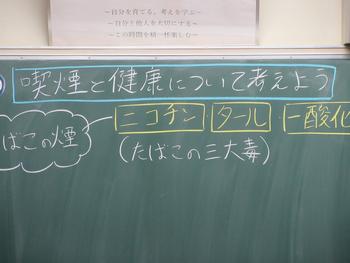 ～自分を育てる。考えを学ぶ～
～自分と他人を大切にする～
～この時間を精一杯楽しむ～
喫煙と健康について考えよう
ばこの煙
ニコチン タール 一酸化
(たばこの三大毒)